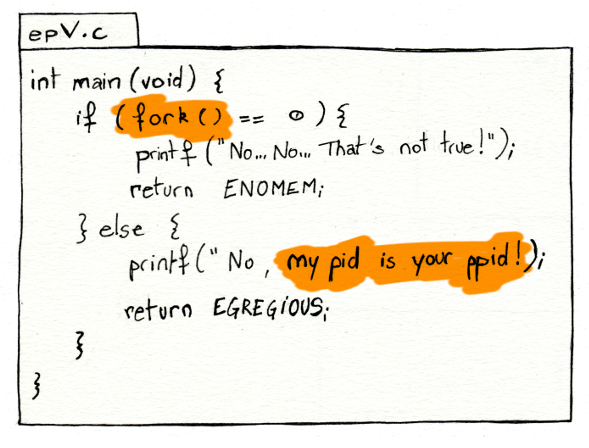 epV.c
int main (void) {
if (fork () == 0) {
printf ("No... No... That's not true!");
return ENOMEM;
} else {
printf (" No, my pid is your ppid!);
return EGREGIOUS;
}
}